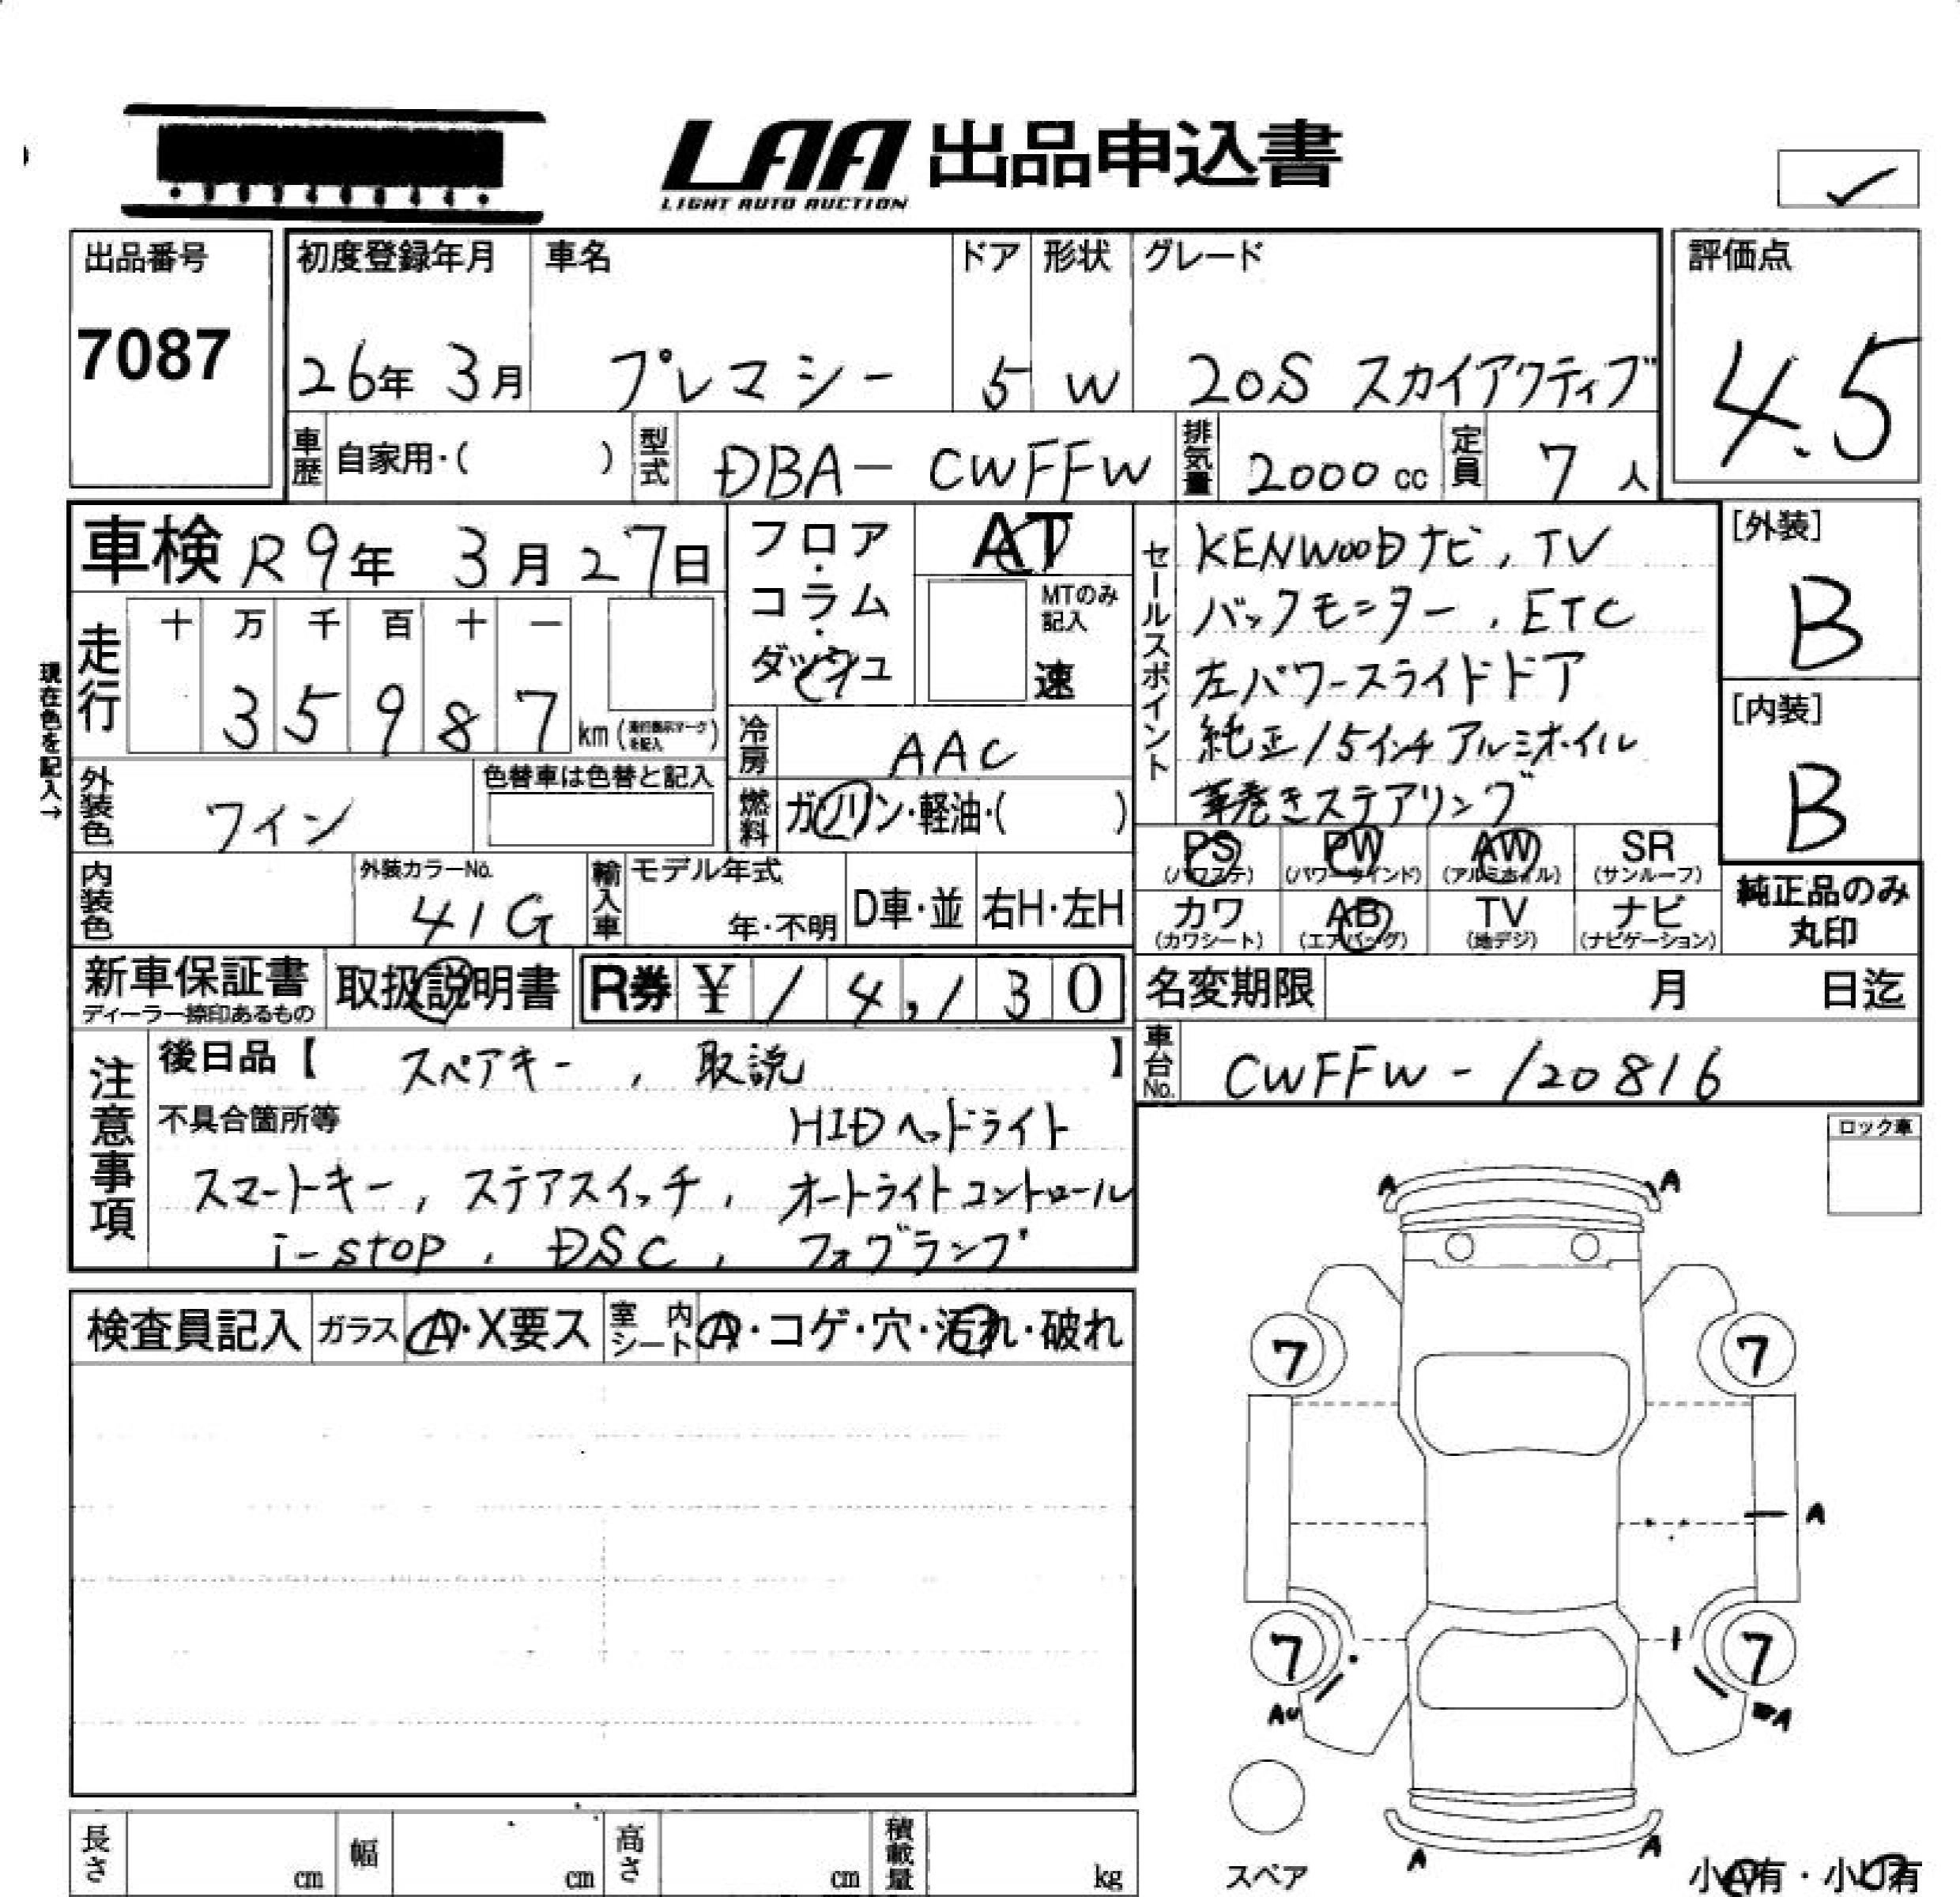 LAA 出品申込書
LIGHT AUTO AUCTION
出品番号
7087
初度登録年月
26年 3月
車名
プレマシー
ドア
5
形状
W
グレード
20S スカイアクティブ
評価点
4.5
車歴 自家用・( )
型式 DBA-CWFFW
排気量 2000 cc
定員 7 人
車検 R9年 3月 27日
走行
十 万 千 百 十 一
3 5 9 8 7 km
現在色を記入→
フロア・コラム・ダッシュ
AT
MTのみ記入
速
冷房 AAC
燃料 ガソリン・軽油・( )
セールスポイント
KENWOODナビ, TV
バックモニター, ETC
左パワースライドドア
純正15インチアルミホイル
革巻きステアリング
[外装]
B
[内装]
B
外装色 ワイン
色替車は色替と記入
内装色
外装カラーNo.
41G
輸入車
モデル年式
年・不明
D車・並
右H・左H
PS (パワステ)
PW (パワーウインド)
AW (アルミホイル)
SR (サンルーフ)
カワ (カワシート)
AB (エアバッグ)
TV (地デジ)
ナビ (ナビゲーション)
純正品のみ
丸印
新車保証書
ディーラー捺印あるもの
取扱説明書
R券 ¥ 14,130
名変期限 月 日迄
車台No. CWFFW-120816
注意事項
後日品【 スペアキー, 取説 】
不具合箇所等 HIDヘッドライト
スマートキー, ステアスイッチ, オートライトコントロール
i-stop, DSC, フォグランプ
ロック車
検査員記入
ガラス A・X要ス
室内シート A・コゲ・穴・汚れ・破れ
A A
7 7
A
7 7
AU
A
A A
スペア
小A有・小U有
長さ cm
幅 cm
高さ cm
積載量 kg